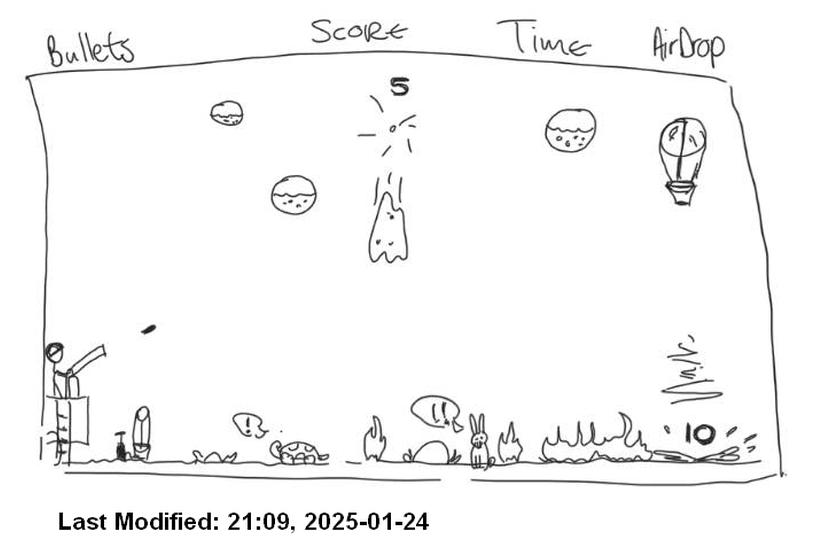 Bullets SCORE TIME AirDrop
5
!
!!
10
Last Modified: 21:09, 2025-01-24